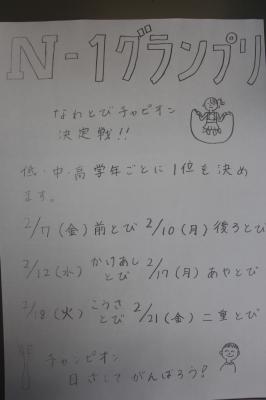 N-1グランプリ
なわとびチャピオン
決定戦!!
低・中・高学年ごとに1位を決め
ます。
2/7(金)前とび 2/10(月)後ろとび
2/12(水)かけあしとび 2/17(月)あやとび
2/18(火)こうさとび 2/21(金)二重とび
チャンピオン
目ざして がんばろう!